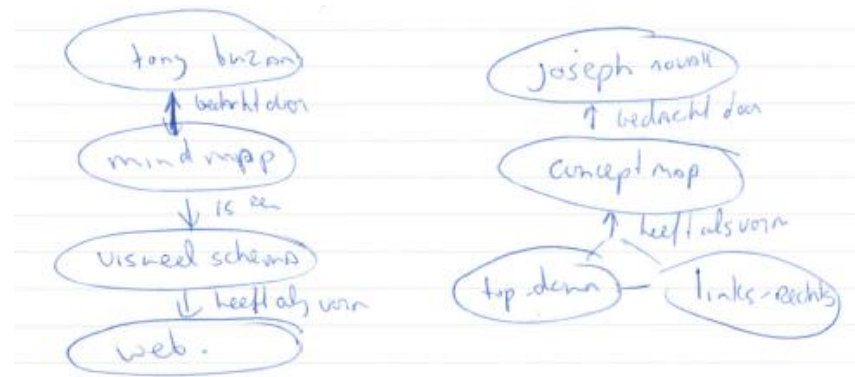 tony buzan
bedacht door
mind mapp
is een
visueel schema
heeft als vorm
web.
joseph novak
bedacht door
concept map
heeft als vorm
top-down
links-rechts